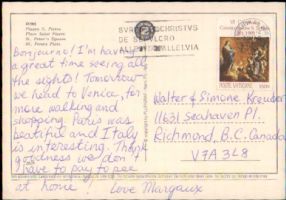 ROMA
Piazza S. Pietro
Place Saint Pierre
St. Peter's Square
St. Peters Platz
SVRREXIT CHRISTVS
DE SEPVLCRO
ALLELVIA ALLELVIA
POSTE VATICANE
Bonjourno! I'm having
a great time seeing all
the sights! Tomorrow
we head to Venice, for
more walking and
shopping. Paris was
beatiful and Italy
is interesting. Thank
goodness we don't
have to pay to pee
at home! Love Margaux
Walter & Simone Kreuder
11631 Seahaven Pl.
Richmond, B.C. Canada
V7A 3L8